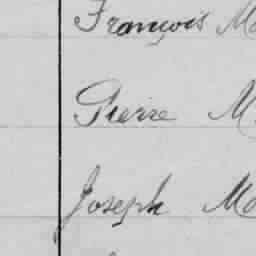 François Ma
Pierre M
Joseph Ma